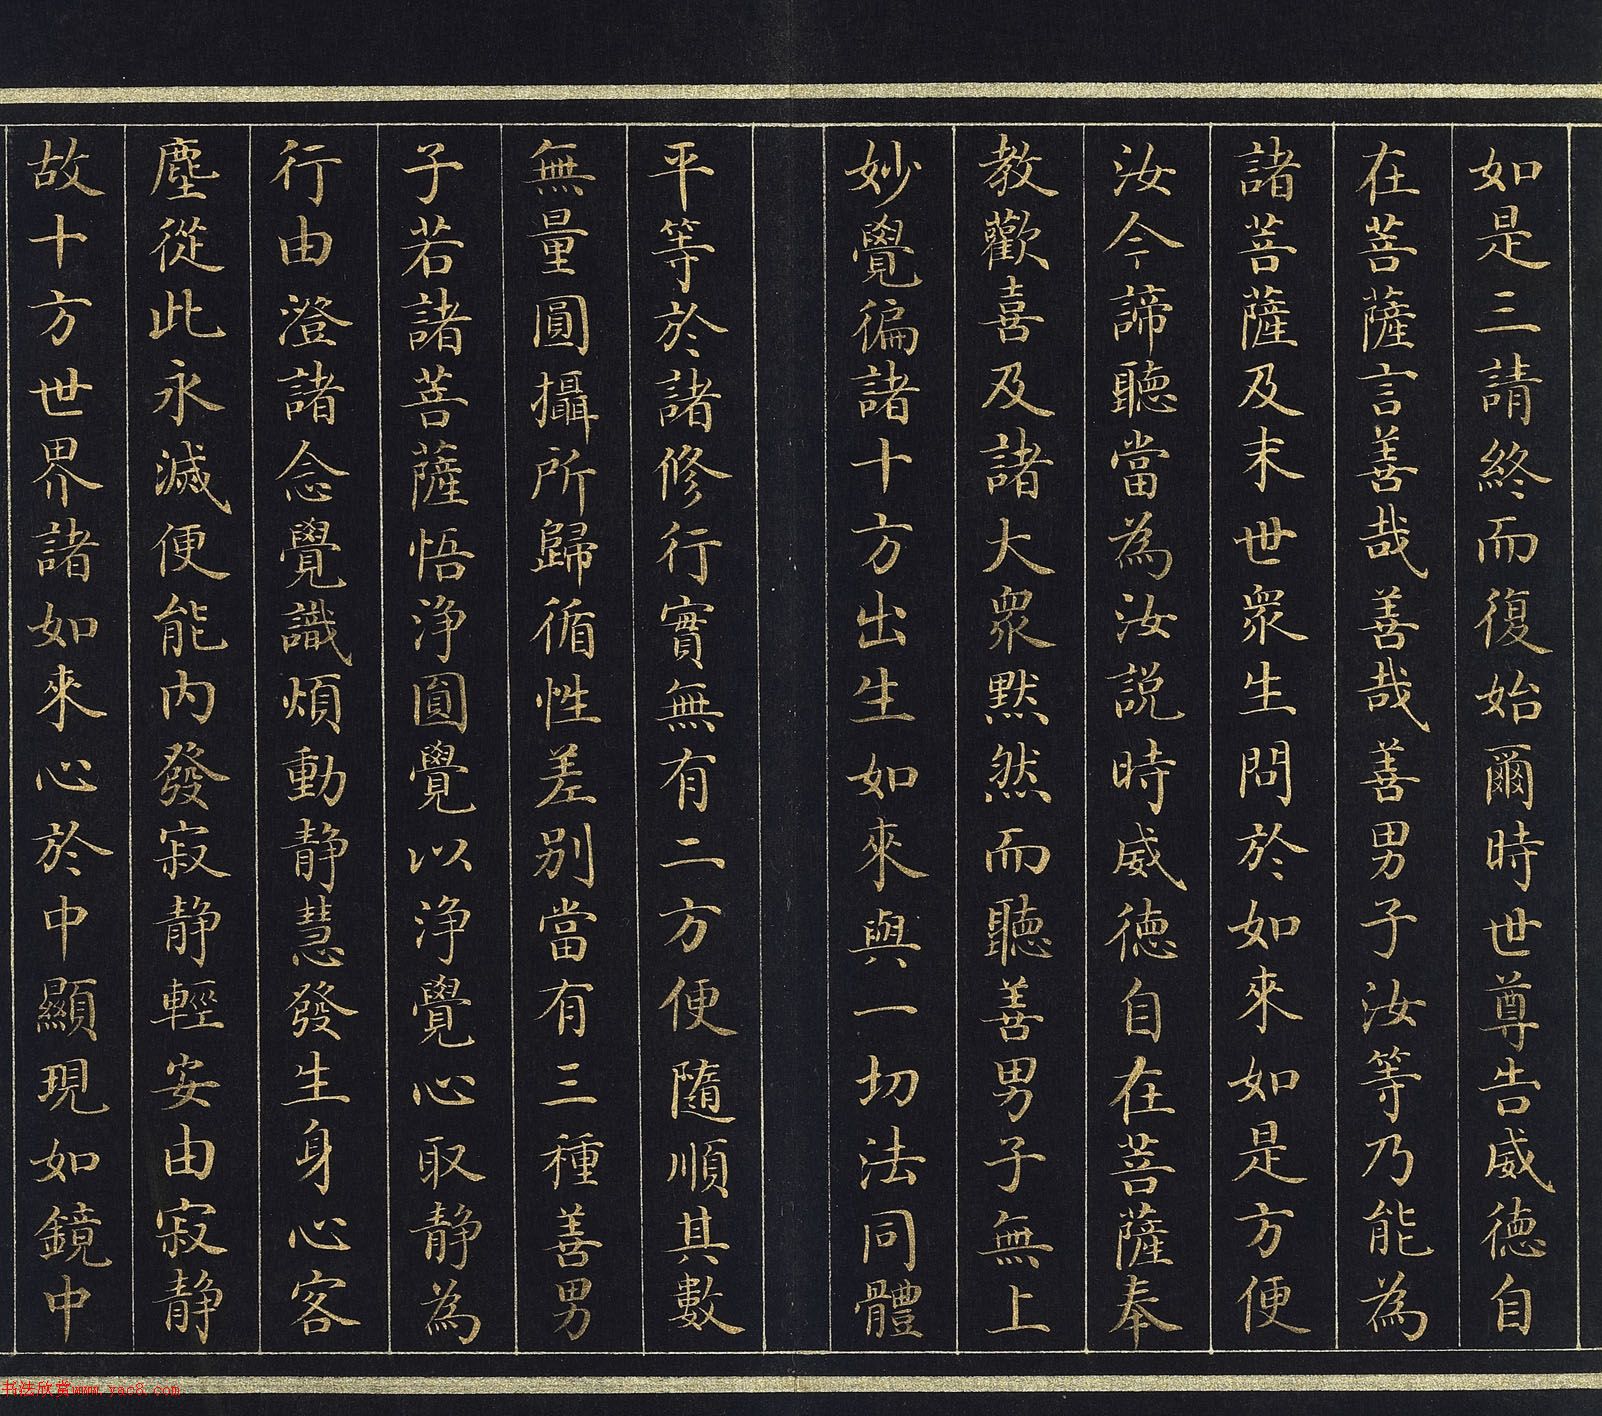 如是三請終而復始爾時世尊告威德自
在菩薩言善哉善哉善男子汝等乃能為
諸菩薩及末世眾生問於如來如是方便
汝今諦聽當為汝說時威德自在菩薩奉
教歡喜及諸大眾默然而聽善男子無上
妙覺徧諸十方出生如來與一切法同體
平等於諸修行實無有二方便隨順其數
無量圓攝所歸循性差別當有三種善男
子若諸菩薩悟淨圓覺以淨覺心取静為
行由澄諸念覺識煩動静慧發生身心客
塵從此永滅便能內發寂静輕安由寂静
故十方世界諸如來心於中顯現如鏡中
书法欣赏www.yac8.com